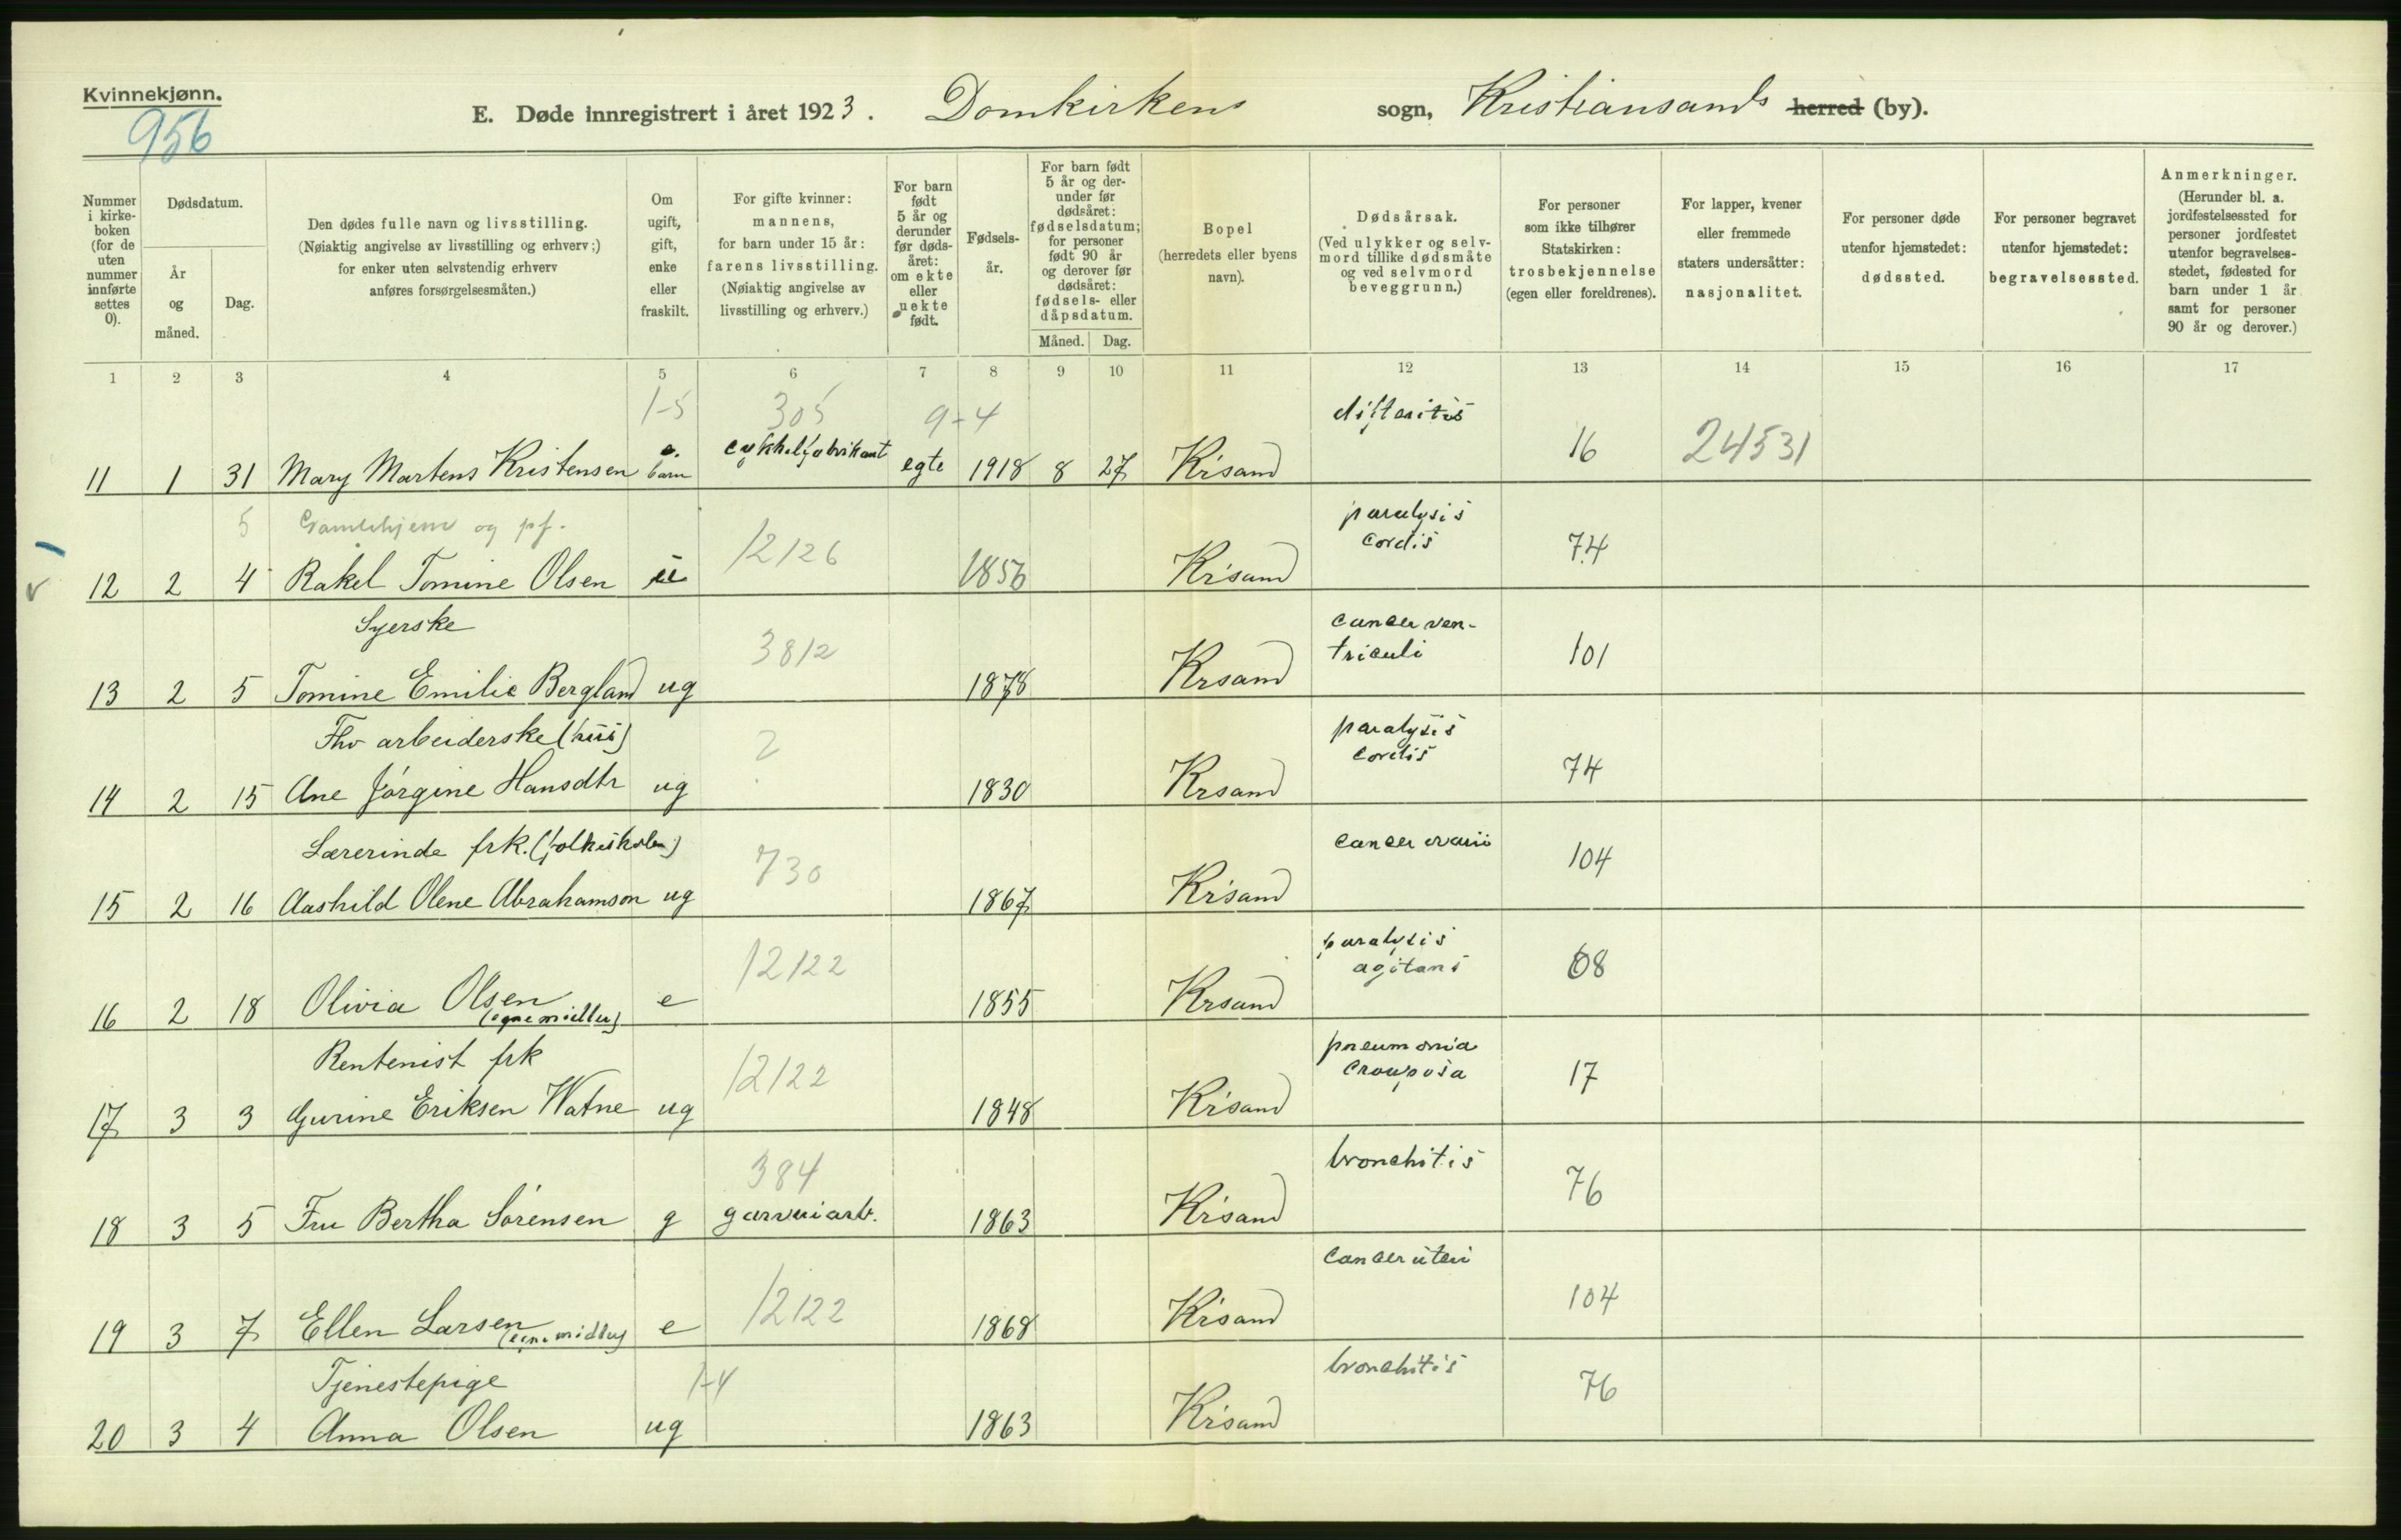 Kvinnekjønn.
956
E. Døde innregistrert i året 1923. Domkirkens sogn, Kristiansands herred (by).
Nummer i kirkeboken (for de uten nummer innførte settes 0).
Dødsdatum.
År og måned.
Dag.
Den dødes fulle navn og livsstilling.
(Nøiaktig angivelse av livsstilling og erhverv;)
for enker uten selvstendig erhverv
anføres forsørgelsesmåten.)
Om ugift, gift, enke eller fraskilt.
For gifte kvinner:
mannens,
for barn under 15 år:
farens livsstilling.
(Nøiaktig angivelse av
livsstilling og erhverv.)
For barn født 5 år og derunder før dødsåret: om ekte eller uekte født.
Fødselsår.
For barn født 5 år og derunder før dødsåret: fødselsdatum; for personer født 90 år og derover før dødsåret: fødsels- eller dåpsdatum.
Måned. Dag.
Bopel
(herredets eller byens
navn).
Dødsårsak.
(Ved ulykker og selvmord tillike dødsmåte
og ved selvmord
beveggrunn.)
For personer
som ikke tilhører
Statskirken:
trosbekjennelse
(egen eller foreldrenes).
For lapper, kvener
eller fremmede
staters undersåtter:
nasjonalitet.
For personer døde
utenfor hjemstedet:
dødssted.
For personer begravet
utenfor hjemstedet:
begravelsessted.
Anmerkninger.
(Herunder bl. a.
jordfestelsessted for
personer jordfestet
utenfor begravelsesstedet, fødested for
barn under 1 år
samt for personer
90 år og derover.)
1 2 3 4 5 6 7 8 9 10 11 12 13 14 15 16 17
1-5 305 9-4 difteritis
11 1 31 Mary Martens Kristensen barn cykkelfabrikant egte 1918 8 27 Kr'sand 16 24531
5 Gamlehjem og pf. 12126 paralysis cordis
12 2 4 Rakel Tomine Olsen u 1856 Kr'sand 74
Syerske 3812 cancer ventriculi
13 2 5 Tomine Emilie Bergland ug 1878 Krsand 101
Fhv arbeiderske ? paralysis cordis
14 2 15 Ane Jørgine Hansdtr ug 1830 Krsand 74
Lærerinde frk. (folkeskolen) 730 cancer ovarii
15 2 16 Aashild Olene Abrahamson ug 1867 Kr'sand 104
12122 paralysis agitans
16 2 18 Olivia Olsen (egne midler) e 1855 Krsand 68
Rentenist frk 12122 pneumonia crouposa
17 3 3 Gurine Eriksen Watne ug 1848 Kr'sand 17
384 bronchitis
18 3 5 Fru Bertha Sørensen g garveriarb. 1863 Kr'sand 76
12122 cancer uteri
19 3 7 Ellen Larsen (egne midler) e 1868 Kr'sand 104
Tjenestepige 1-4 bronchitis
20 3 4 Anna Olsen ug 1863 Kr'sand 76